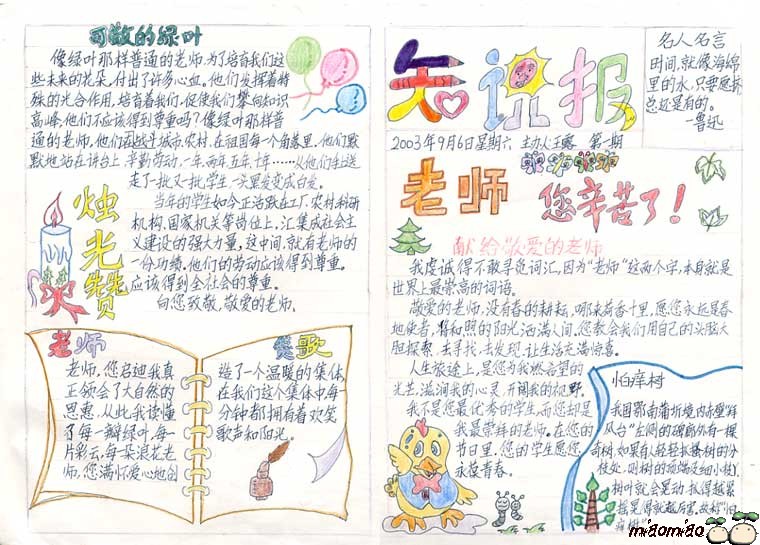 可敬的绿叶
像绿叶那样普通的老师,为了培育我们这
些未来的花朵,付出了许多心血。他们发挥着特
殊的光合作用,培育着我们,促使我们攀向知识
高峰,他们不应该得到尊重吗?像绿叶那样普
通的老师,他们在城市、农村,在祖国每一个角落里,他们默
默地站在讲台上,辛勤劳动,一年、两年、五年、十年……从他们手上送
走了一批又一批学生,一头黑发变成白发。
当年的学生如今正活跃在工厂、农村、科研
机构、国家机关等岗位上,汇集成社会主
义建设的强大力量,这中间,就有老师的
一份功绩。他们的劳动应该得到尊重。
应该得到全社会的尊重。
向您致敬,敬爱的老师。
烛光赞
老师
老师,您启迪我真
正领会了大自然的
恩惠,从此我读懂
了每一瓣绿叶,每一
片彩云,每一朵浪花老
师,您满怀爱心地创
赞歌
造了一个温暖的集体,
在我们这个集体中每一
分钟都拥有着欢笑
歌声和阳光。
知识报
名人名言
时间,就像海绵
里的水,只要愿挤,
总还是有的。
—鲁迅
2003年9月6日星期六 主办人:王 第一期
老师 您辛苦了!
献给敬爱的老师
我虔诚得不敢寻觅词汇,因为“老师”这两个字,本身就是
世界上最崇高的词语。
敬爱的老师,没有春的耕耘,哪来荷香十里,愿您永远是春
地使者,将和照的阳光洒满人间。您教会我们用自己的头脑大
胆探索,去寻找,去发现,让生活充满惊喜。
人生旅途上,是您为我燃起希望的
光芒,滋润我的心灵,开阔我的视野。
我不是您最优秀的学生,而您却是
我最崇拜的老师。在您的
节日里,您的学生愿您
永葆青春。
怕痒树
我国鄂南蒲圻境内赤壁“拜
风台”左侧的碑廊后有一棵
奇树,如果有人轻轻抓搔树的分
枝处,则树的顶端及细小枝
树叶就会晃动,抓得越累
摇晃得就越厉害,故称“怕
痒树”
miaomiao